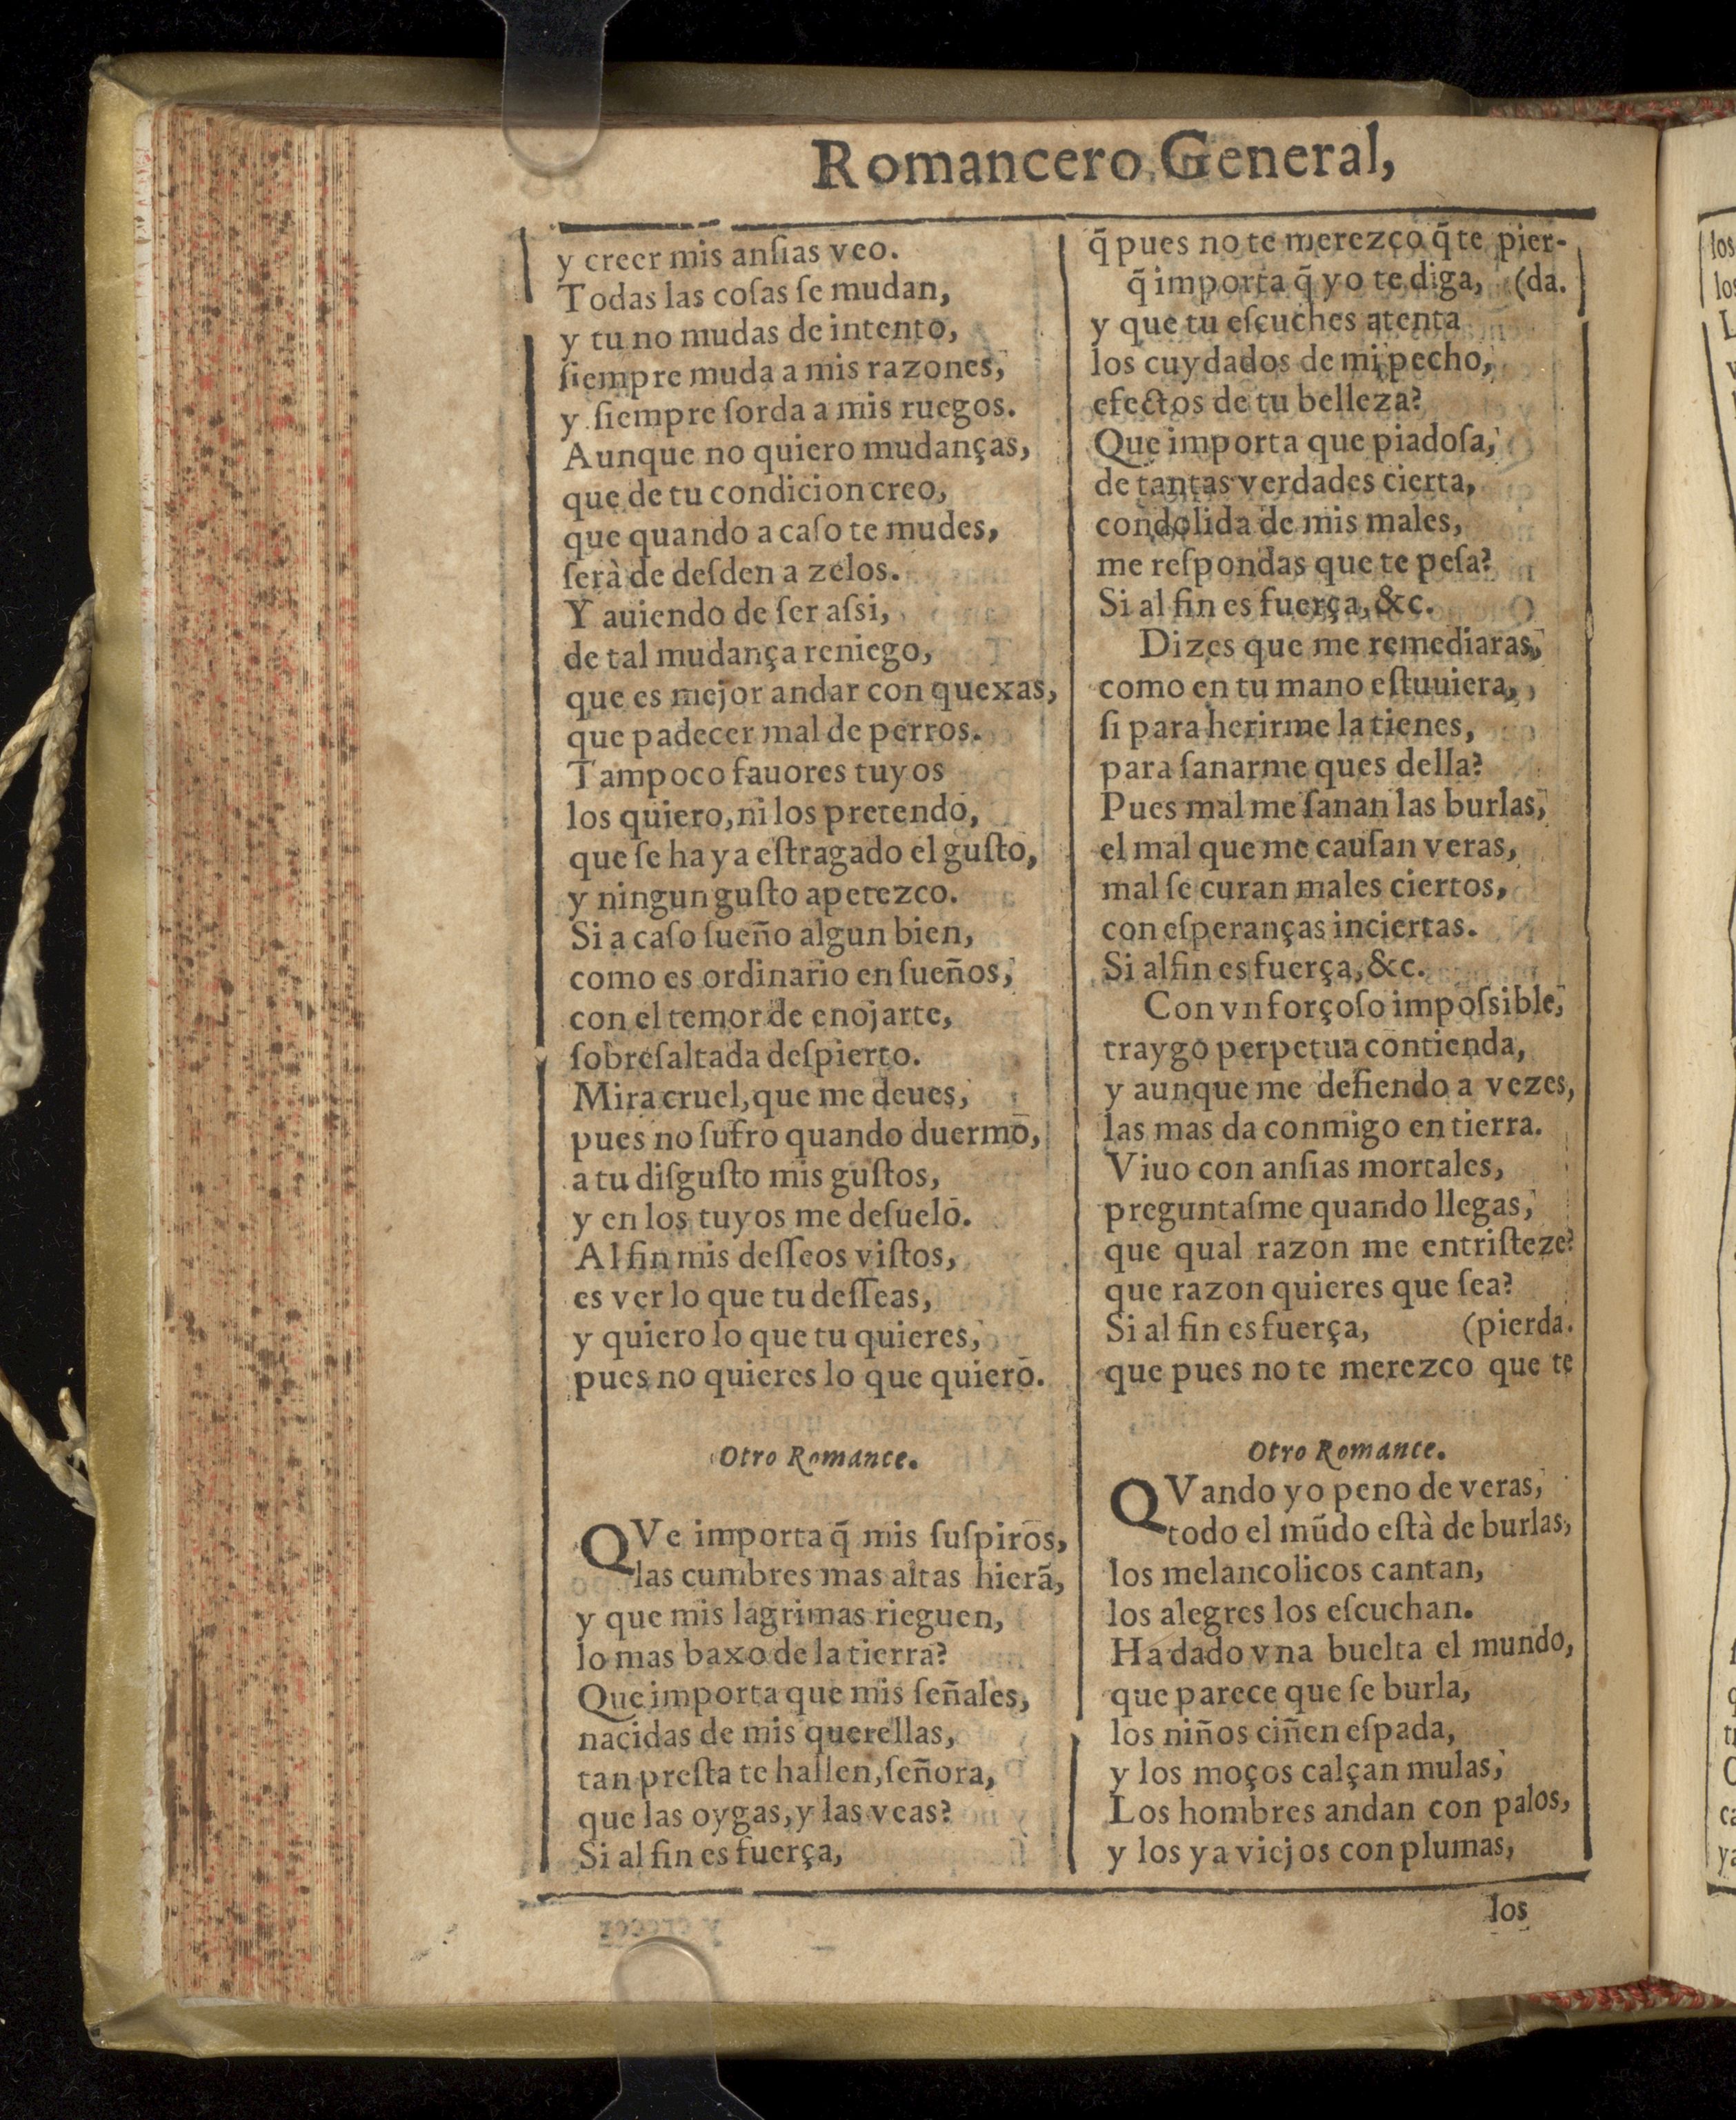 Romancero General,
y creer mis anſias veo.
Todas las coſas ſe mudan,
y tu no mudas de intento,
ſiempre muda a mis razones,
y ſiempre ſorda a mis ruegos.
Aunque no quiero mudanças,
que de tu condicion creo,
que quando a caſo te mudes,
ſerà de deſden a zelos.
Y auiendo de ſer aſsi,
de tal mudança reniego,
que es mejor andar con quexas,
que padecer mal de perros.
Tampoco fauores tuyos
los quiero, ni los pretendo,
que ſe haya eſtragado el guſto,
y ningun guſto apetezco.
Si a caſo ſueño algun bien,
como es ordinario en ſueños,
con el temor de enojarte,
ſobreſaltada deſpierto.
Mira cruel, que me deues,
pues no ſufro quando duermo,
a tu diſguſto mis guſtos,
y en los tuyos me deſuelo.
Al fin mis deſſeos viſtos,
es ver lo que tu deſſeas,
y quiero lo que tu quieres,
pues no quieres lo que quiero.
Otro Romance.
QVe importa q̃ mis ſuſpiros,
las cumbres mas altas hierã,
y que mis lagrimas rieguen,
lo mas baxo de la tierra?
Que importa que mis ſeñales,
nacidas de mis querellas,
tan preſta te hallen, ſeñora,
que las oygas, y las veas?
Si al fin es fuerça,
q̃ pues no te merezco q̃ te pier-
q̃ importa q̃ yo te diga, (da.
y que tu eſcuches atenta
los cuydados de mi pecho,
efectos de tu belleza?
Que importa que piadoſa,
de tantas verdades cierta,
condolida de mis males,
me reſpondas que te peſa?
Si al fin es fuerça, &c.
Dizes que me remediaras,
como en tu mano eſtuuiera,
ſi para herirme la tienes,
para ſanarme ques della?
Pues mal me ſanan las burlas,
el mal que me cauſan veras,
mal ſe curan males ciertos,
con eſperanças inciertas.
Si al fin es fuerça, &c.
Con vn forçoſo impoſsible,
traygo perpetua contienda,
y aunque me defiendo a vezes,
las mas da conmigo en tierra.
Viuo con anſias mortales,
preguntaſme quando llegas,
que qual razon me entriſteze?
que razon quieres que ſea?
Si al fin es fuerça, (pierda.
que pues no te merezco que te
Otro Romance.
QVando yo peno de veras,
todo el mũdo eſtà de burlas,
los melancolicos cantan,
los alegres los eſcuchan.
Ha dado vna buelta el mundo,
que parece que ſe burla,
los niños ciñen eſpada,
y los moços calçan mulas,
Los hombres andan con palos,
y los ya viejos con plumas,
los